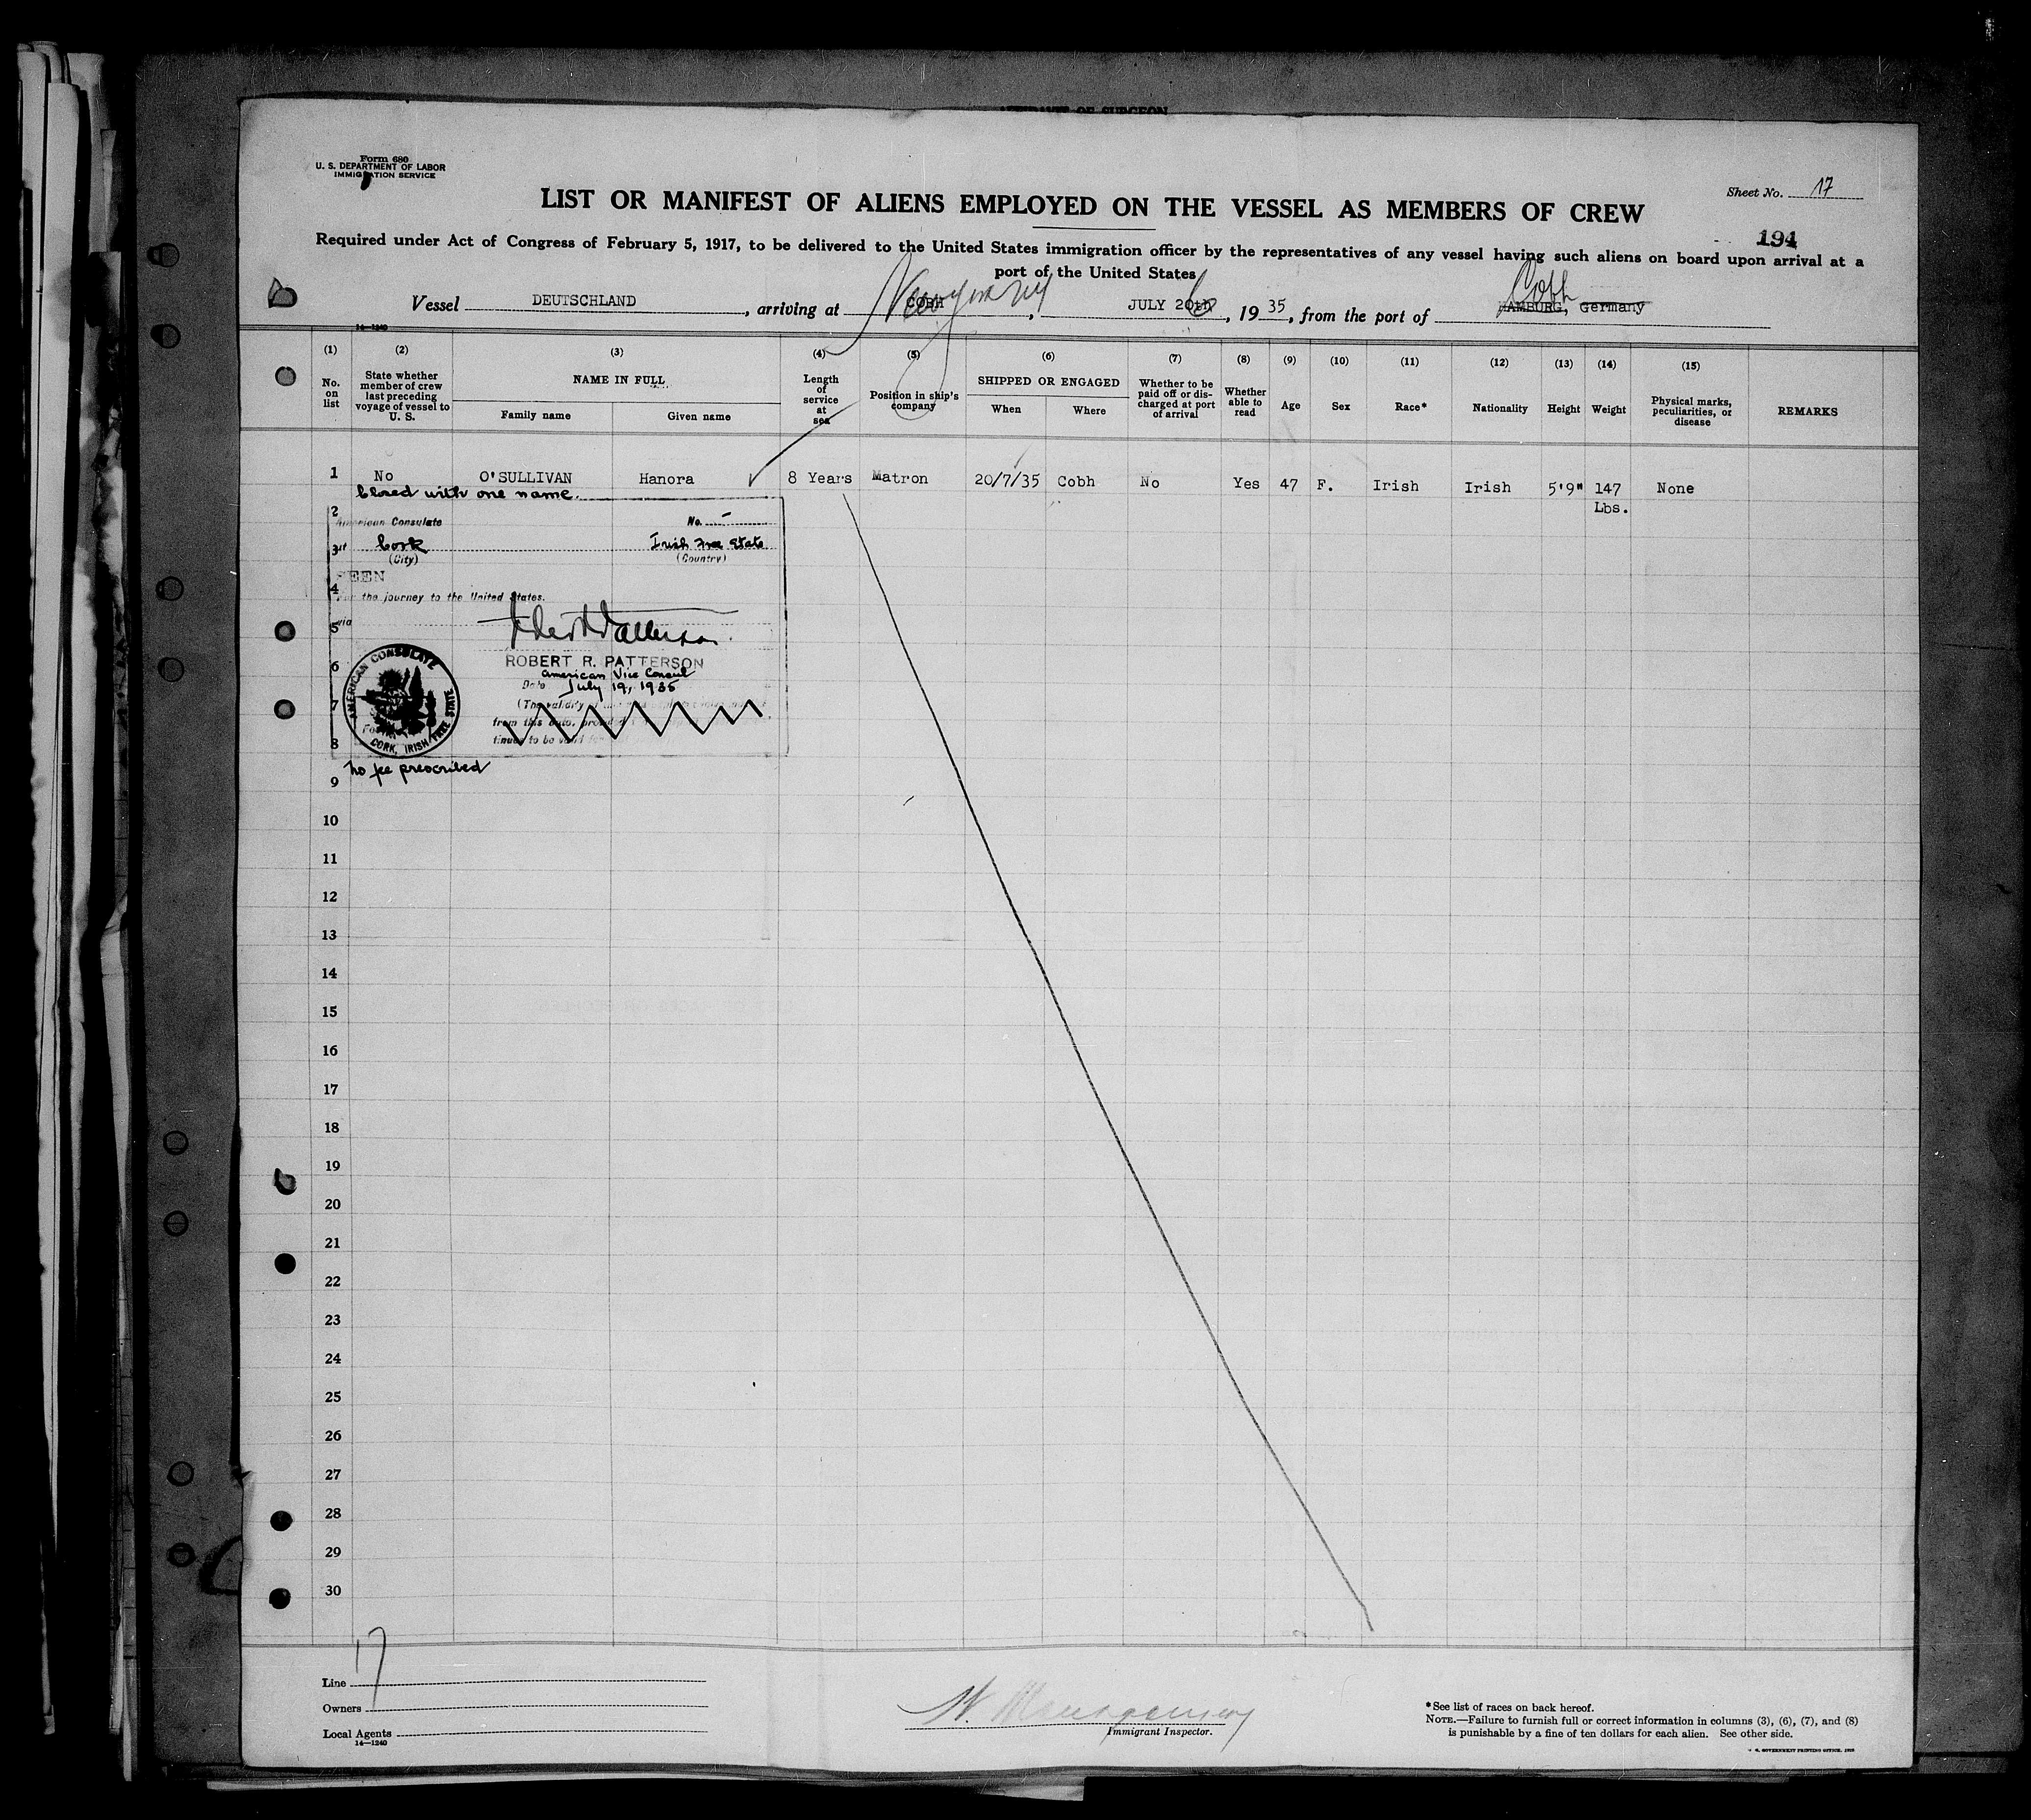 AFFIDAVIT OF SURGEON
Form 680
U. S. DEPARTMENT OF LABOR
IMMIGRATION SERVICE
Sheet No. 17
LIST OR MANIFEST OF ALIENS EMPLOYED ON THE VESSEL AS MEMBERS OF CREW
194
Required under Act of Congress of February 5, 1917, to be delivered to the United States immigration officer by the representatives of any vessel having such aliens on board upon arrival at a
port of the United States
New York NY Cobh
Vessel DEUTSCHLAND, arriving at COBH, JULY 20th, 19 35, from the port of HAMBURG, Germany
14—1240
(1) (2) (3) (4) (5) (6) (7) (8) (9) (10) (11) (12) (13) (14) (15)
No. on list
State whether member of crew last preceding voyage of vessel to U. S.
NAME IN FULL
Family name
Given name
Length of service at sea
Position in ship's company
SHIPPED OR ENGAGED
When
Where
Whether to be paid off or discharged at port of arrival
Whether able to read
Age
Sex
Race*
Nationality
Height
Weight
Physical marks, peculiarities, or disease
REMARKS
1 No O'SULLIVAN Hanora 8 Years Matron 20/7/35 Cobh No Yes 47 F. Irish Irish 5'9" 147 Lbs. None
Closed with one name.
2
American Consulate No. -
3
Cork Irish Free State
(City) (Country)
SEEN
4
For the journey to the United States.
5
via
6
ROBERT R. PATTERSON
American Vice Consul
Date July 19, 1935
7
(The validity
from this date, provided
8
tinues to be valid for
AMERICAN CONSULATE
CORK, IRISH FREE STATE
No fee prescribed
9
10
11
12
13
14
15
16
17
18
19
20
21
22
23
24
25
26
27
28
29
30
17
Line
Owners
Local Agents
14—1240
Immigrant Inspector.
*See list of races on back hereof.
NOTE.—Failure to furnish full or correct information in columns (3), (6), (7), and (8)
is punishable by a fine of ten dollars for each alien. See other side.
U. S. GOVERNMENT PRINTING OFFICE.